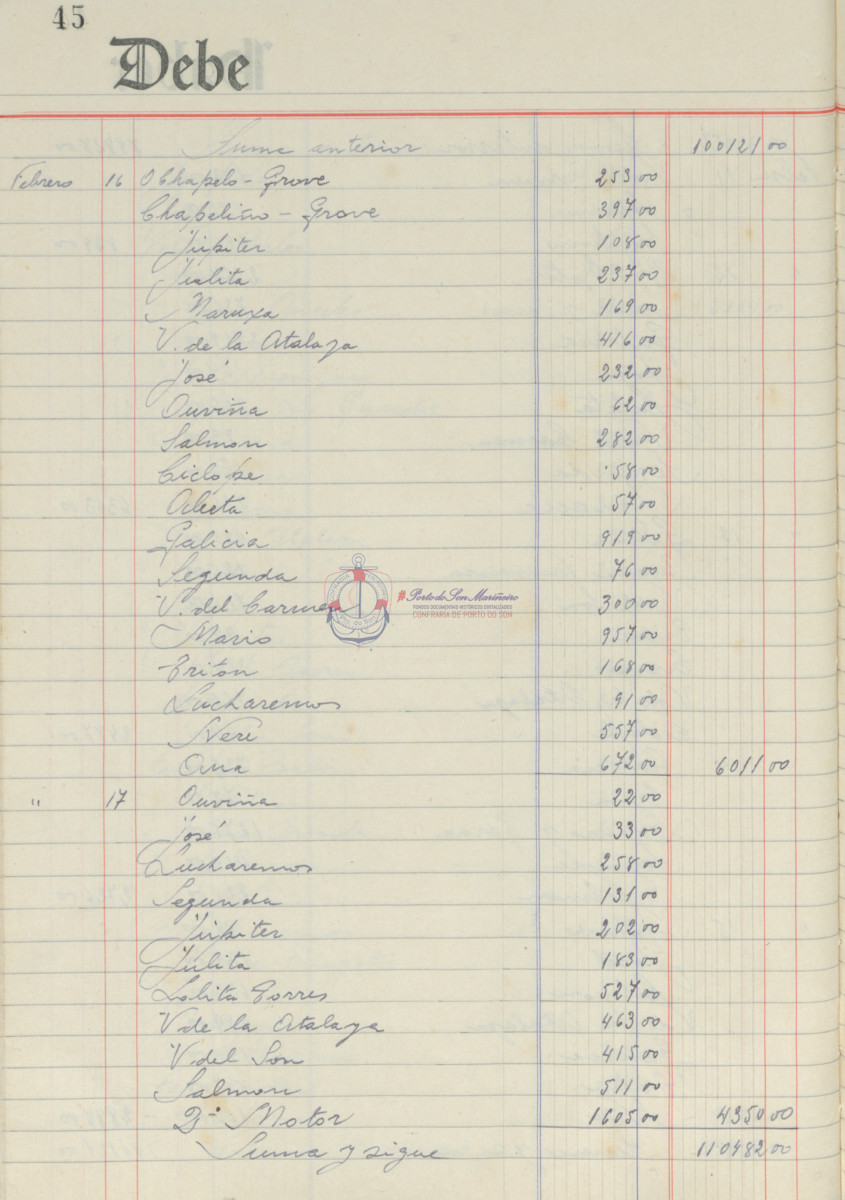 45
Debe
Suma anterior 100121 00
Febrero 16 O Chapelo - Grove 253 00
Chapeliño - Grove 397 00
Júpiter 108 00
Julita 237 00
Maruxa 169 00
V. de la Atalaya 416 00
José 232 00
Ouviña 62 00
Salmon 282 00
Ciclope 58 00
Olecta 57 00
Galicia 919 00
Segunda 76 00
V. del Carmen 300 00
#PortodeSonMariñeiro
FONDOS DOCUMENTAIS HISTÓRICOS DIXITALIZADOS
CONFRARÍA DE PORTO DO SON
Mario 957 00
Triton 168 00
Lucharemos 91 00
Neri 557 00
Ona 672 00 6011 00
" 17 Ouviña 22 00
José 33 00
Lucharemos 258 00
Segunda 131 00
Júpiter 202 00
Julita 183 00
Lolita Torres 527 00
V de la Atalaya 463 00
V. del Son 415 00
Salmon 511 00
2º Motor 1605 00 4350 00
Suma y sigue 110482 00